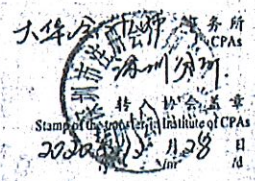 大华会计师事务所
CPAs
深圳分所
转入协会盖章
Stamp of the transfer-in Institute of CPAs
2020年12月28日
/m /d